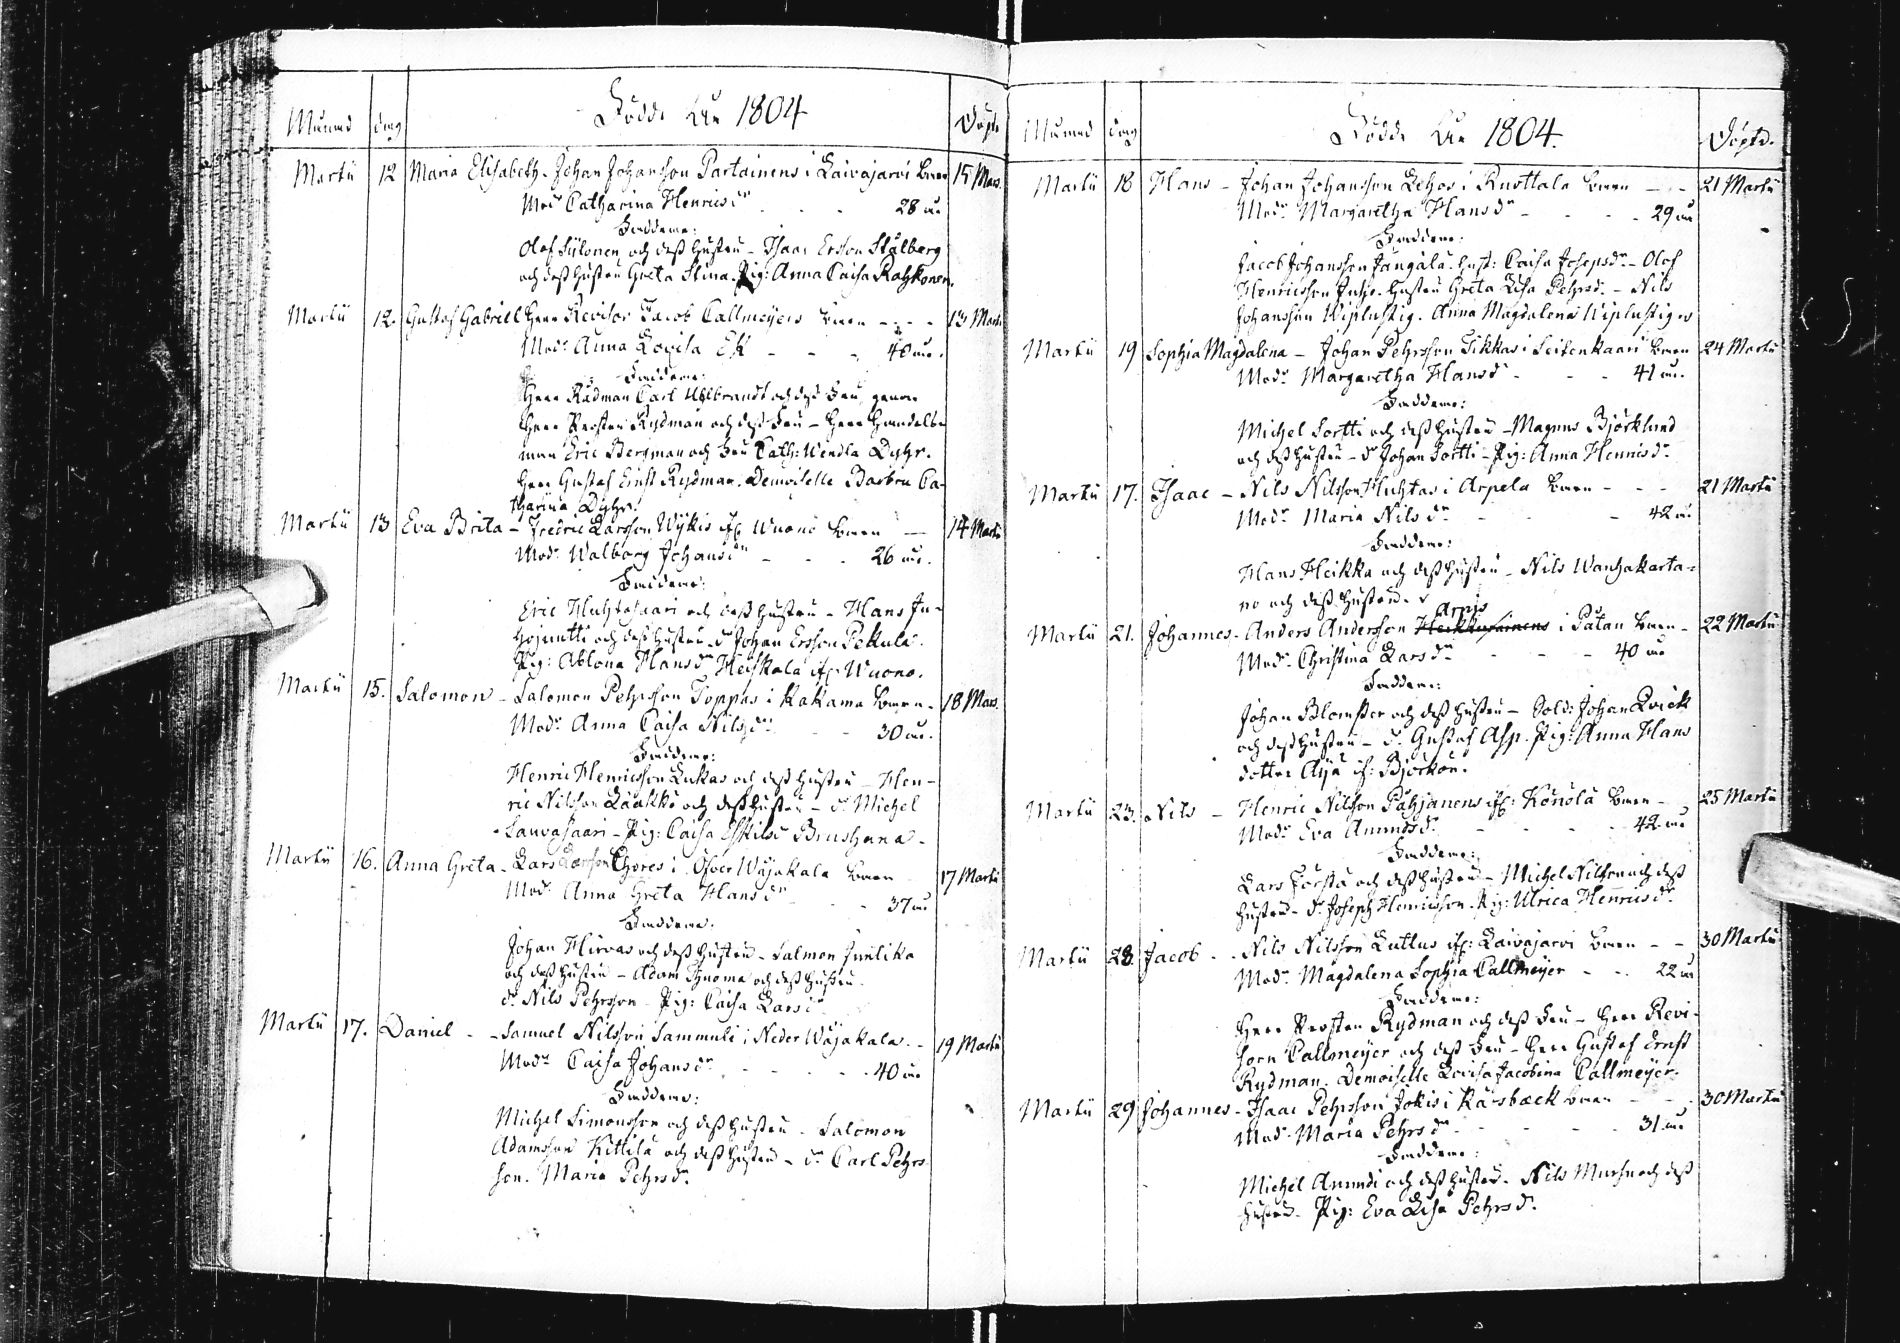 Födde År 1804
Månad dag Döpte
Martii 12 Maria Elisabeth - Johan Johansson Partainens i Laivajarvi barn 15 Mars.
Modr Catharina Henricsdr - - - 28 år
Faddrar:
Olof Siilonen och dess hustru - Isaac Ersson Stålberg
och dess hustru Greta Stina. Pig: Anna Caisa Rahkonen.
Martii 12. Gustaf Gabriell Herr Revisor Jacob Callmeyers barn - - - 13 Mart.
Modr Anna Lovisa Ek - - - 40 år.
Faddrar:
Herr Rådman Carl och dess Fru, genom
Herr Prosten Rydman och dess Fru - Herr Handels-
man Eric Bergman och Fru Cath: Wendla Dyhr.
Herr Gustaf Ernst Rydman. Demoiselle Barbru Ca-
tharina Dyhr.
Martii 13 Eva Brita - Fredric Larsson Wykis if. Wuono barn - 14 Martii
Modr Walborg Johansdr - - - 26 år.
Faddrar:
Eric Huhtasaari och dess hustru - Hans Ju-
hojuntti och dess hustru - d. Johan Ersson Pekula.
Pig: Ablona Hansdr Heiskala if. Wuono.
Martii 15. Salomon - Salomon Pehrsson Toppas i Kakama barn - 18 Mars.
Modr Anna Caisa Nilsdr - - 30 år.
Faddrar:
Henric Henricsson Lukas och dess hustru - Hen-
ric Nilsson Laakko och dess hustru - d. Michel
Sauvasaari - Pig: Caisa Eskilsdr
Martii 16. Anna Greta - Lars Larsson Thores i Öfver Wojakala barn 17 Martii
Modr Anna Greta Hansdr - - 37 år
Faddrar:
Johan Hirvas och dess hustru - Salmon
och dess hustru - Adam Thuoma och dess hustru
d. Nils Pehrsson - Pig: Caisa Larsdr
Martii 17. Daniel - Samuel Nilsson Sammuli i Neder Wojakala - 19 Martii
Modr Caisa Johansdr - - - 40 år
Faddrar:
Michel Simonsson och dess hustru - Salomon
Adamsson Kittilä och dess hustru - d. Carl Pehrs-
son. Maria Pehrsdr
Födde År 1804.
Månad dag Döpte.
Martii 18 Hans - Johan Johansson Lehos i Ruottala barn - - 21 Martii
Modr Margaretha Hansdr - - - 29 år
Faddrar:
Jacob Johansson Jängälä. hust: Caisa Josepsdr - Olof
Henricsson hustru Greta Lisa Pehrsdr - Nils
Johansson Wiplustig. Anna Magdalena Wiplustig
Martii 19 Sophia Magdalena - Johan Pehrsson Sikkas i Seitenkaari barn 24 Martii
Modr Margaretha Hansdr - - 41 år.
Faddrar:
Michel Sortti och dess hustru - Magnus Björklund
och dess hustru - d. Johan Sortti - Pig: Anna Henricsdr
Martii 17. Isaac - Nils Nilsson Huhtas i Arpela barn - - 21 Martii
Modr Maria Nilsdr - - 42 år
Faddrar:
Hans Heikka och dess hustru - Nils Wanhakarta-
no och dess hustru.
Arpis
Martii 21. Johannes - Anders Andersson Heikkurainens i Påtan barn - 22 Martii
Modr Christina Larsdr - - - 40 år
Faddrar:
Johan Blomster och dess hustru - Sold: Johan Qvick
och dess hustru - d. Gustaf Asp. Pig: Anna Hans
dotter Äijä if: Björkön.
Martii 23. Nils - Henric Nilsson Pähjänens if: Könölä barn - 25 Martii
Modr Eva Amundsdr - - - 42 år
Faddrar:
Lars Torsta och dess hustru - Michel Nilsson och dess
hustru - d. Joseph Henricsson. Pig: Ulrica Henricsdr
Martii 28. Jacob - Nils Nilsson Luttus if: Laivajarvi barn - - 30 Martii
Modr Magdalena Sophia Callmeyer - - 22 år
Faddrar:
Herr Prosten Rydman och dess Fru - Herr Revi-
sorn Callmeyer och dess Fru - Herr Gustaf Ernst
Rydman. Demoiselle Lovisa Jacobina Callmeyer.
Martii 29 Johannes - Isaac Pehrsson Jokis i Karsbæck barn - - 30 Martii
Modr Maria Pehrsdr - - - 31 år
Faddrar:
Michel Amundi och dess hustru. Nils och dess
hustru. Pig: Eva Lisa Pehrsdr.